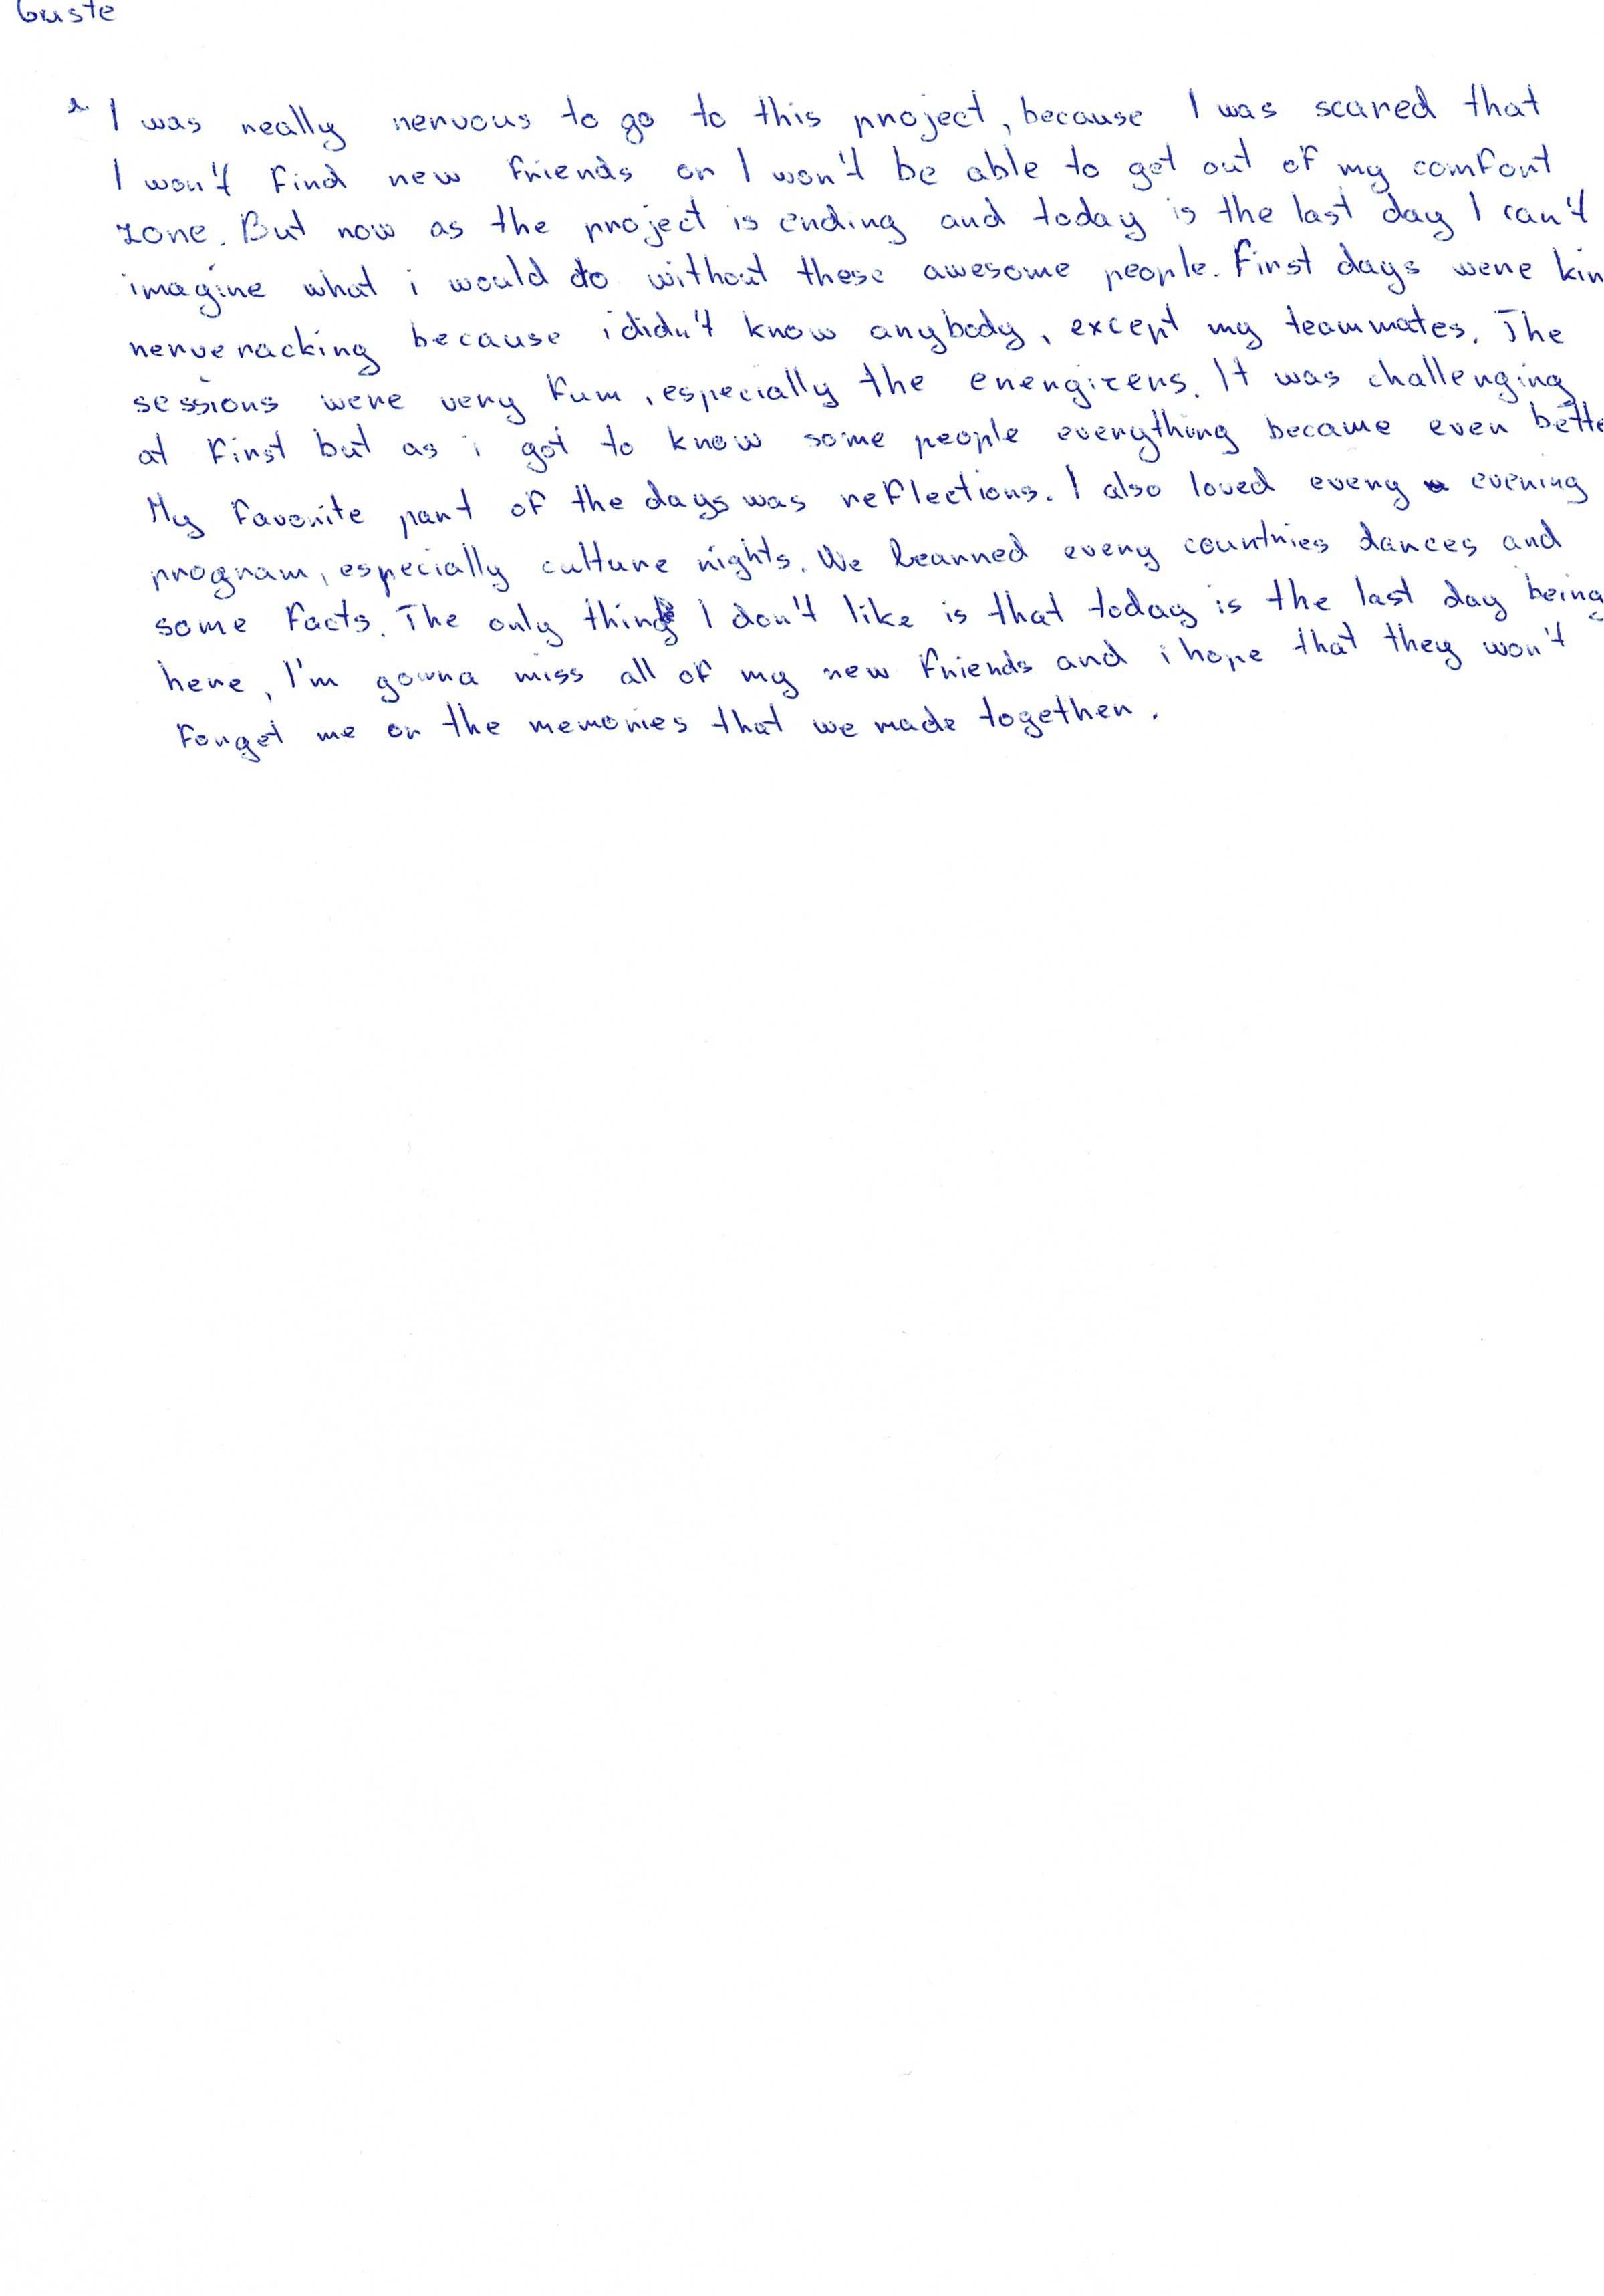 Guste
I was really nervous to go to this project, because I was scared that
I won't find new friends or I won't be able to get out of my comfort
zone. But now as the project is ending and today is the last day I can't
imagine what i would do without these awesome people. First days were kin
nerveracking because i didn't know anybody, except my teammates. The
sessions were very fum, especially the energizers. It was challenging
at first but as i got to know some people everything became even bette
My favorite part of the days was reflections. I also loved every evening
program, especially culture nights. We learned every countries dances and
some facts. The only thing I don't like is that today is the last day being
here, I'm gonna miss all of my new friends and i hope that they won't
forget me or the memories that we made together.